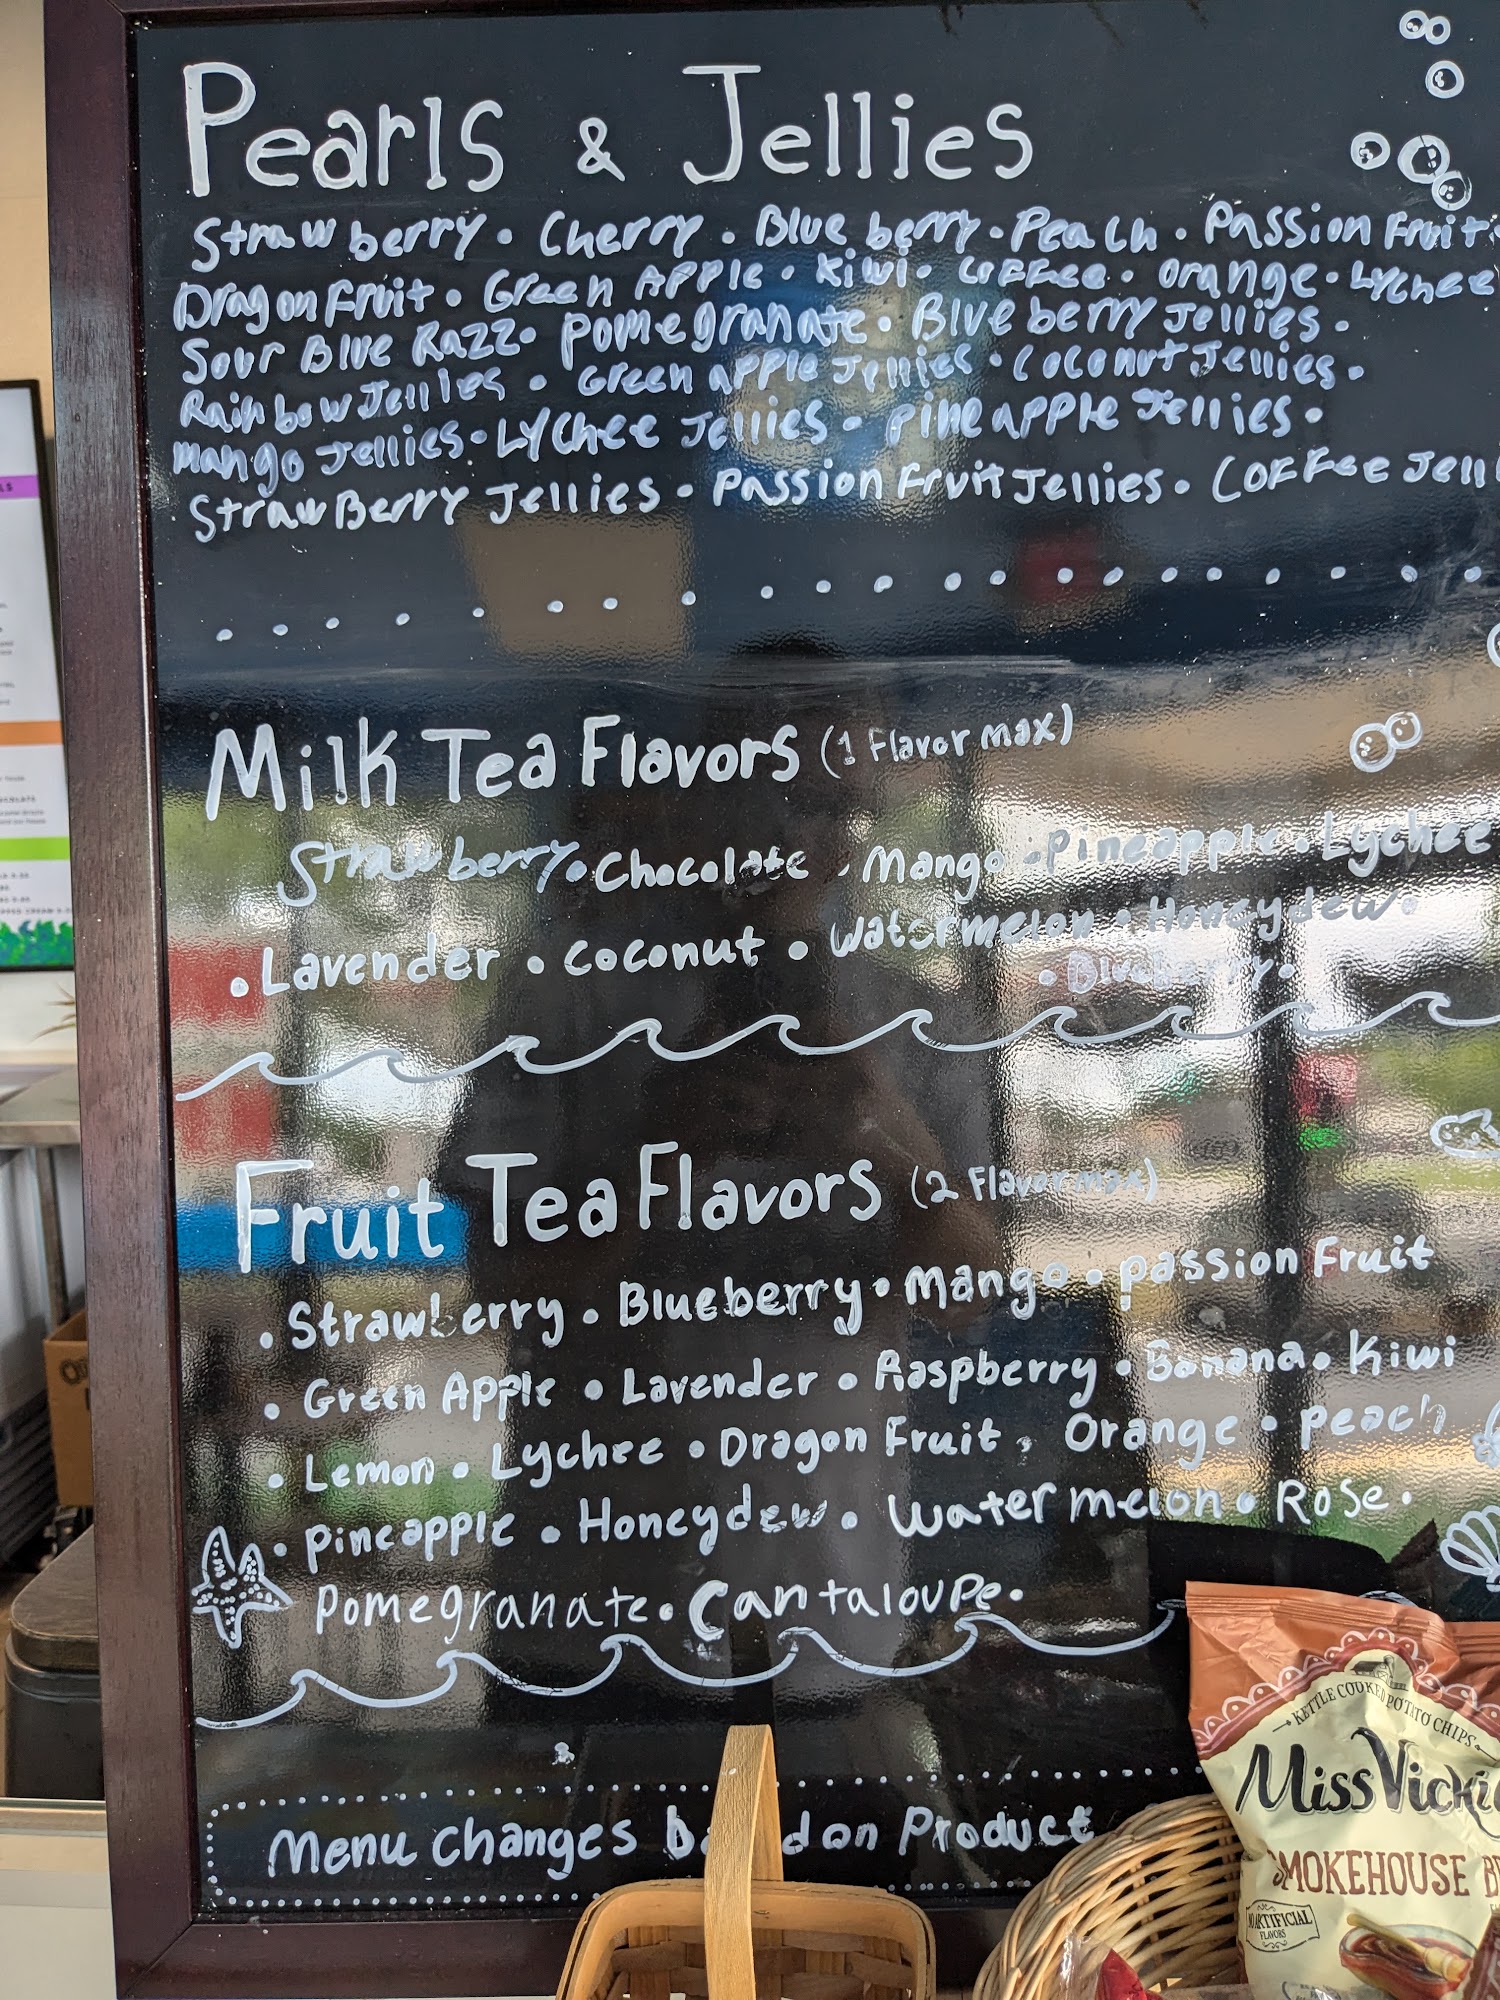 Pearls & Jellies
Strawberry • Cherry • Blueberry • Peach • Passion Fruit •
Dragon Fruit • Green Apple • Kiwi • Coffee • Orange • Lychee
Sour Blue Razz • Pomegranate • Blueberry Jellies •
Rainbow Jellies • Green apple Jellies • Coconut Jellies •
mango Jellies • Lychee Jellies • Pineapple Jellies •
StrawBerry Jellies • Passion Fruit Jellies • Coffee Jell
Milk Tea Flavors (1 Flavor max)
Strawberry • Chocolate • Mango • Pineapple • Lychee
• Lavender • Coconut • Watermelon • Honeydew •
• Blueberry •
Fruit Tea Flavors (2 Flavor max)
• Strawberry • Blueberry • Mango • Passion Fruit
• Green Apple • Lavender • Raspberry • Banana • Kiwi
• Lemon • Lychee • Dragon Fruit • Orange • Peach
• Pineapple • Honeydew • Watermelon • Rose •
Pomegranate • Cantaloupe •
Menu Changes b d on Product
KETTLE COOKED POTATO CHIPS
Miss Vickie
SMOKEHOUSE B
NO ARTIFICIAL
FLAVORS